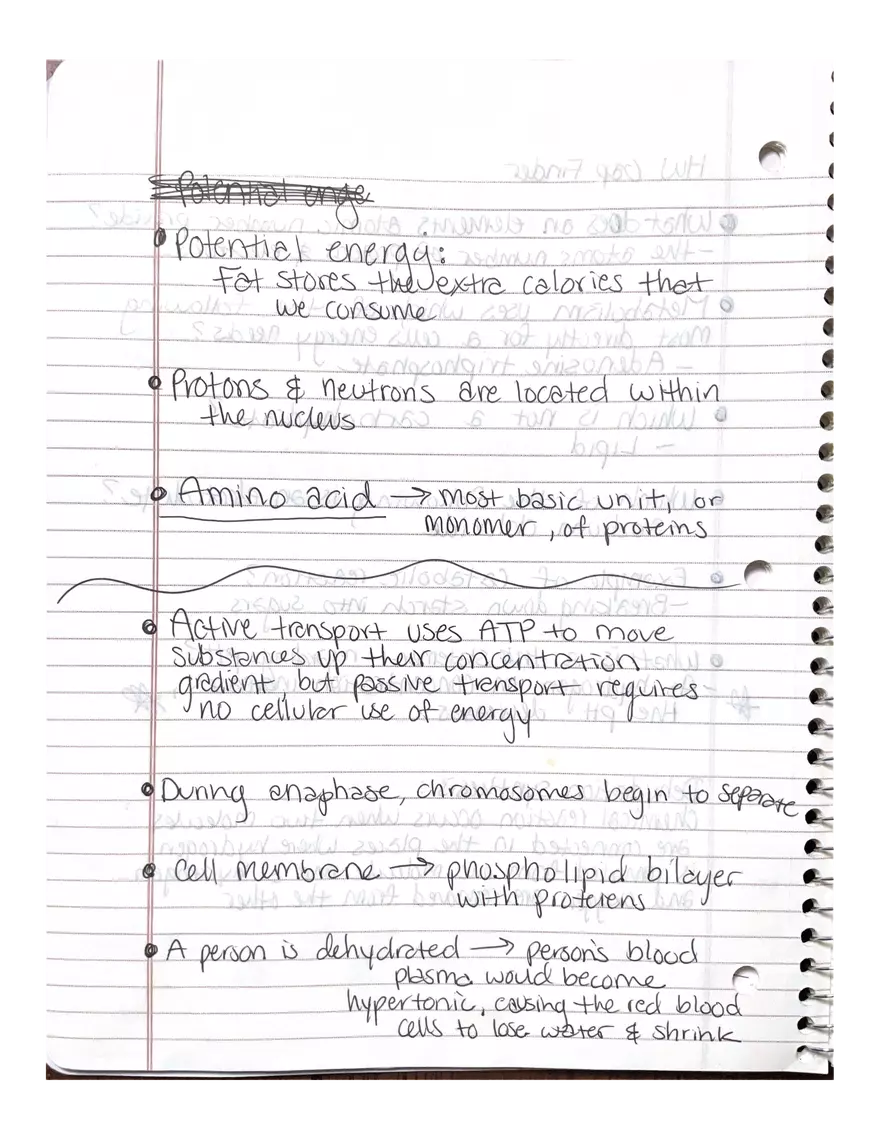 Potential enge
Potential energy:
Fat stores the extra calories that
we consume
Protons & neutrons are located within
the nucleus
Amino acid → most basic unit, or
monomer, of proteins
Active transport uses ATP to move
substances up their concentration
gredient, but passive transport requires
no cellular use of energy
During anaphase, chromosomes begin to separate
Cell membrane → phospholipid bilayer
with proteiens
A person is dehydrated → person's blood
plasma would become
hypertonic, causing the red blood
cells to lose water & shrink